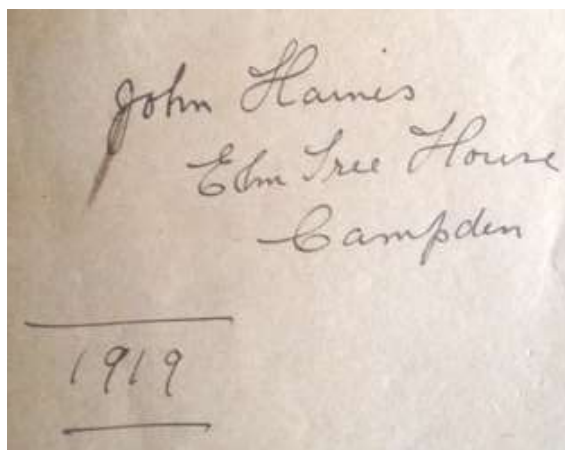 John Haines
Elm Tree House
Campden
1919